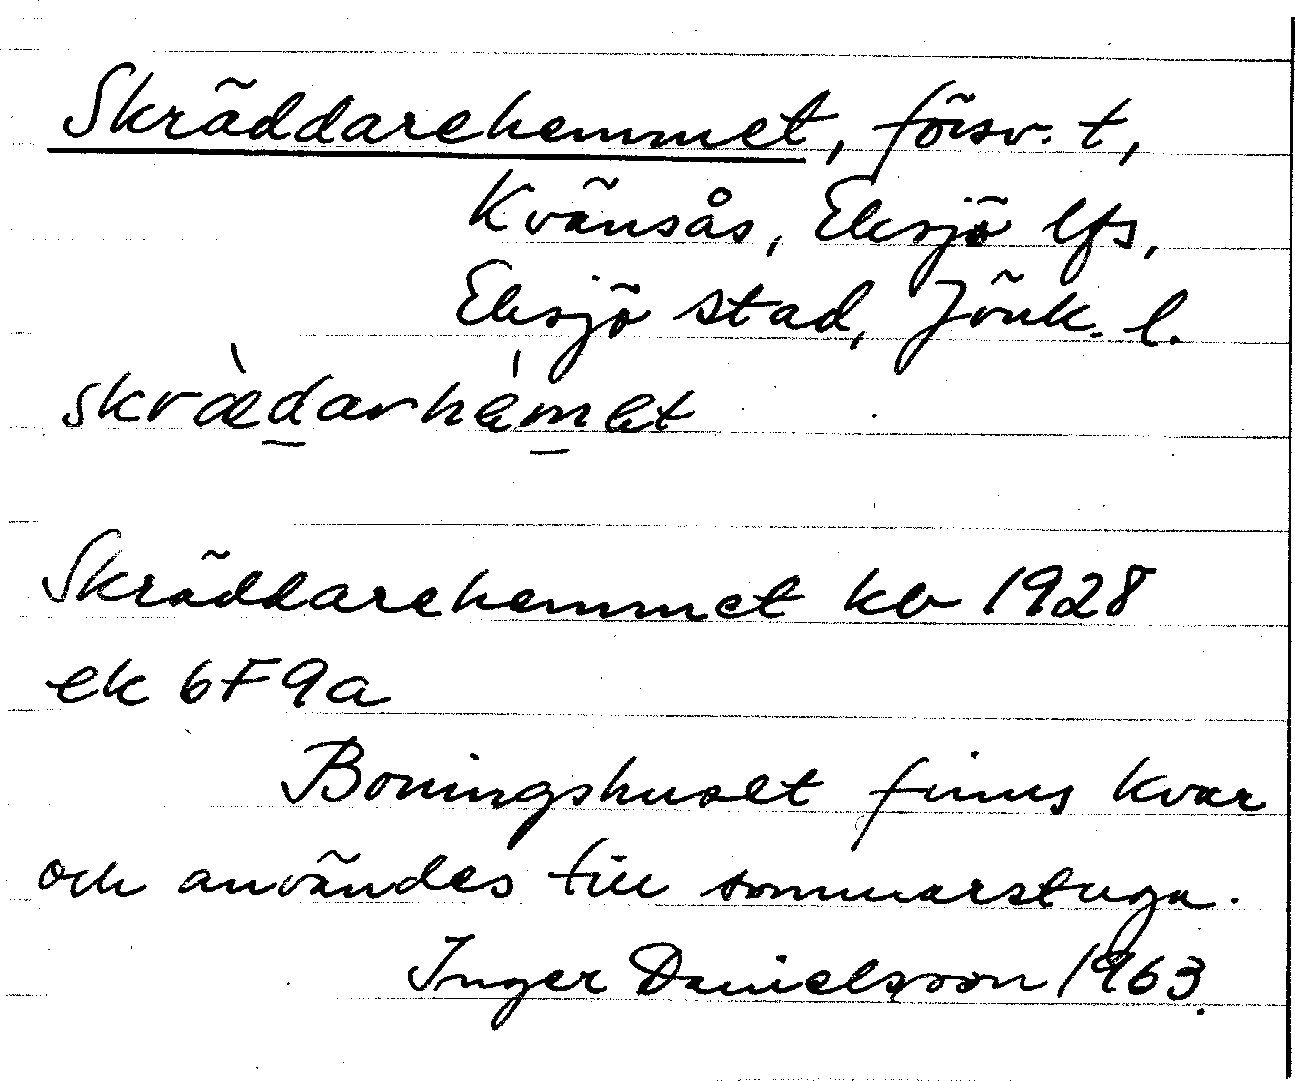 Skräddarehemmet, försv. t,
Kvänsås, Eksjö lfs,
Eksjö stad, Jönk. l.
skræ̀d̲arhèm̲et
Skräddarehemmet kb 1928
ek 6F9a
Boningshuset finns kvar
och användes till sommarstuga.
Inger Danielsson 1963.